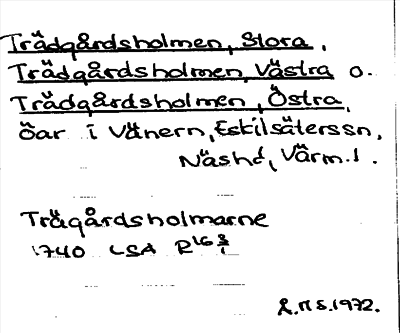 Trädgårdsholmen, Stora,
Trädgårdsholmen, Västra o.
Trädgårdsholmen, Östra,
öar i Vänern, Eskilsäterssn,
Näshd, Värm. l.
Trägårdsholmarne
1740 LSA R16 8/1
1972.